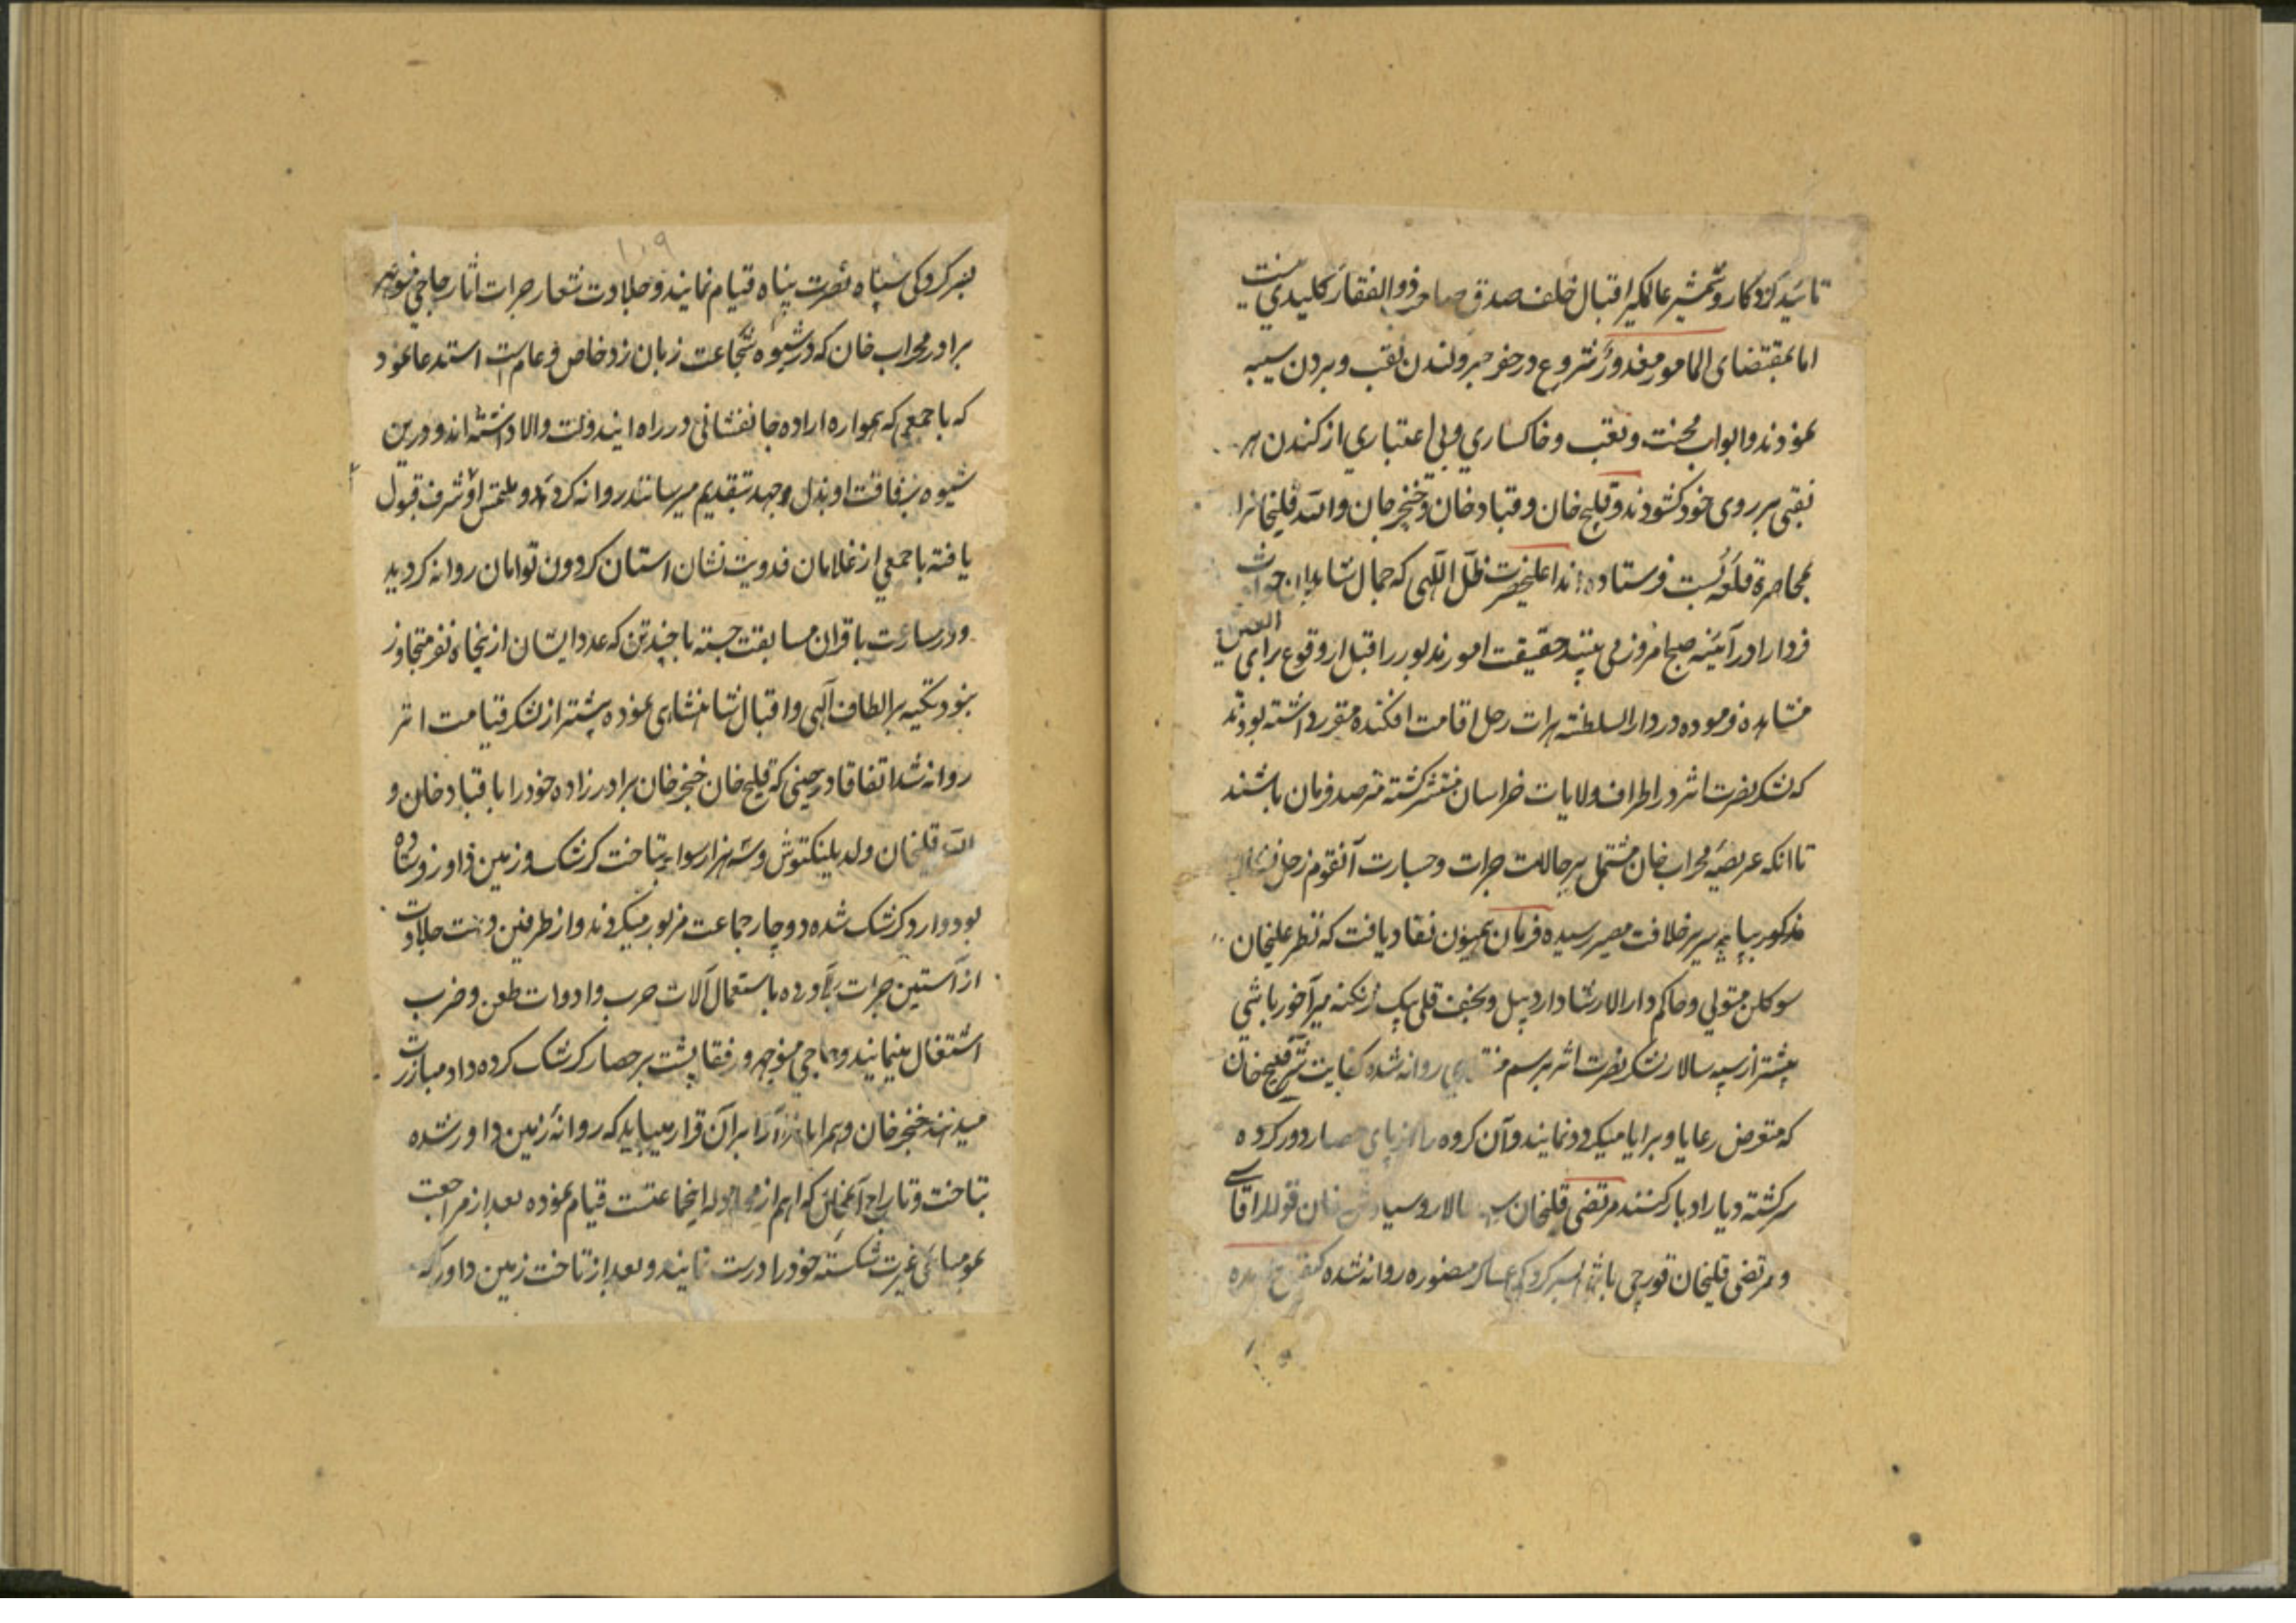 تائید کردکار و شمشیر عالمگیر اقبال خلف صدق صاحب ذوالفقار کلیدی نیست
اما بمقتضای المامور معذور شروع در حفر جر و کندن نقب و بردن سیبه
نمودند و ابواب محنت و تعب و خاکساری و بی اعتباری از کندن هر
نقبی بر روی خود کشودند و قلیج خان و قباد خان و خنجر خان و الله قلیخانرا
بمحاصرهٔ قلعه بست فرستاده اند اعلیحضرت ظل اللهی که جمال شاهدان حوادث
فردا را در آئینه صبح امروز می بینند حقیقت امور مذبور را قبل از وقوع برای العین
مشاهده فرموده در دارالسلطنه هرات رحل اقامت افکنده مقرر داشته بودند
که لشکر نصرت اثر در اطراف ولایات خراسان منتشر کشته مترصد فرمان باشند
تا انکه عریضه محراب خان مشتمل بر حالات جرات و جسارت آنقوم زحل
مذکور بپایه سریر خلافت مصیر رسیده فرمان همیون نفاد یافت که نظر علیخان
سوکلن متولی و حاکم دارالارشاد اردبیل و نجف قلی بیک زنکنه میرآخور باشی
پیشتر از سپه سالار لشکر نصرت اثر برسم منقلای روانه شده کفایت شر قلیج خان
که متعرض رعایا و برایا میکردد نمایند و آن کروه را از پای حصار دور کرده
سرکشته دیار ادبار کنند مرتضی قلیخان سپه سالار و سیاوش خان قوللر اقاسی
و مرتضی قلیخان قورچی باشی بسرکردکی عساکر منصوره روانه شده
۱۰۹
بسرکردکی سپاه نصرت پناه قیام نمایند و جلادت شعار جرات اثار حاجی منوچهر
برادر محراب خان که در شیوه شجاعت زبان زد خاص و عام است استدعا نمود
که با جمعی که همواره اراده جانفشانی در راه ایندولت والا داشته اند و درین
شیوه برفاقت او بذل جهد بتقدیم میرسانند روانه کردد و ملتمس او شرف قبول
یافته با جمعی از غلامان فدویت نشان استان کردون توامان روانه کردید
و در مسارعت با قران مسابقت جسته با چند تن که عدد ایشان از پنجاه نفر متجاوز
نبود تکیه بر الطاف آلهی و اقبال شاهنشاهی نموده پیشتر از لشکر قیامت اثر
روانه شد اتفاقا در حینی که قلیج خان خنجر خان برادر زاده خود را با قباد خان و
الله قلیخان ولد یلنکتوش و سه هزار سوار بتاخت کرشک و زمین داور فرستاده
بود وارد کرشک شده دوچار جماعت مزبور میکردند و از طرفین دست جلادت
از آستین جرات برآورده باستعمال آلات حرب و ادوات طعن و ضرب
اشتغال مینمایند و حاجی منوچهر و رفقا پشت بر حصار کرشک کرده داد مبارزت
میدهند خنجر خان و همراهان را برآن قرار مییابد که روانهٔ زمین داور شده
بتاخت و تاراج آنمکان که اهم از مجادله اینجماعتست قیام نموده بعد از مراجعت
بمومیائی غیرت شکسته خود را درست نمایند و بعد از تاخت زمین داور که